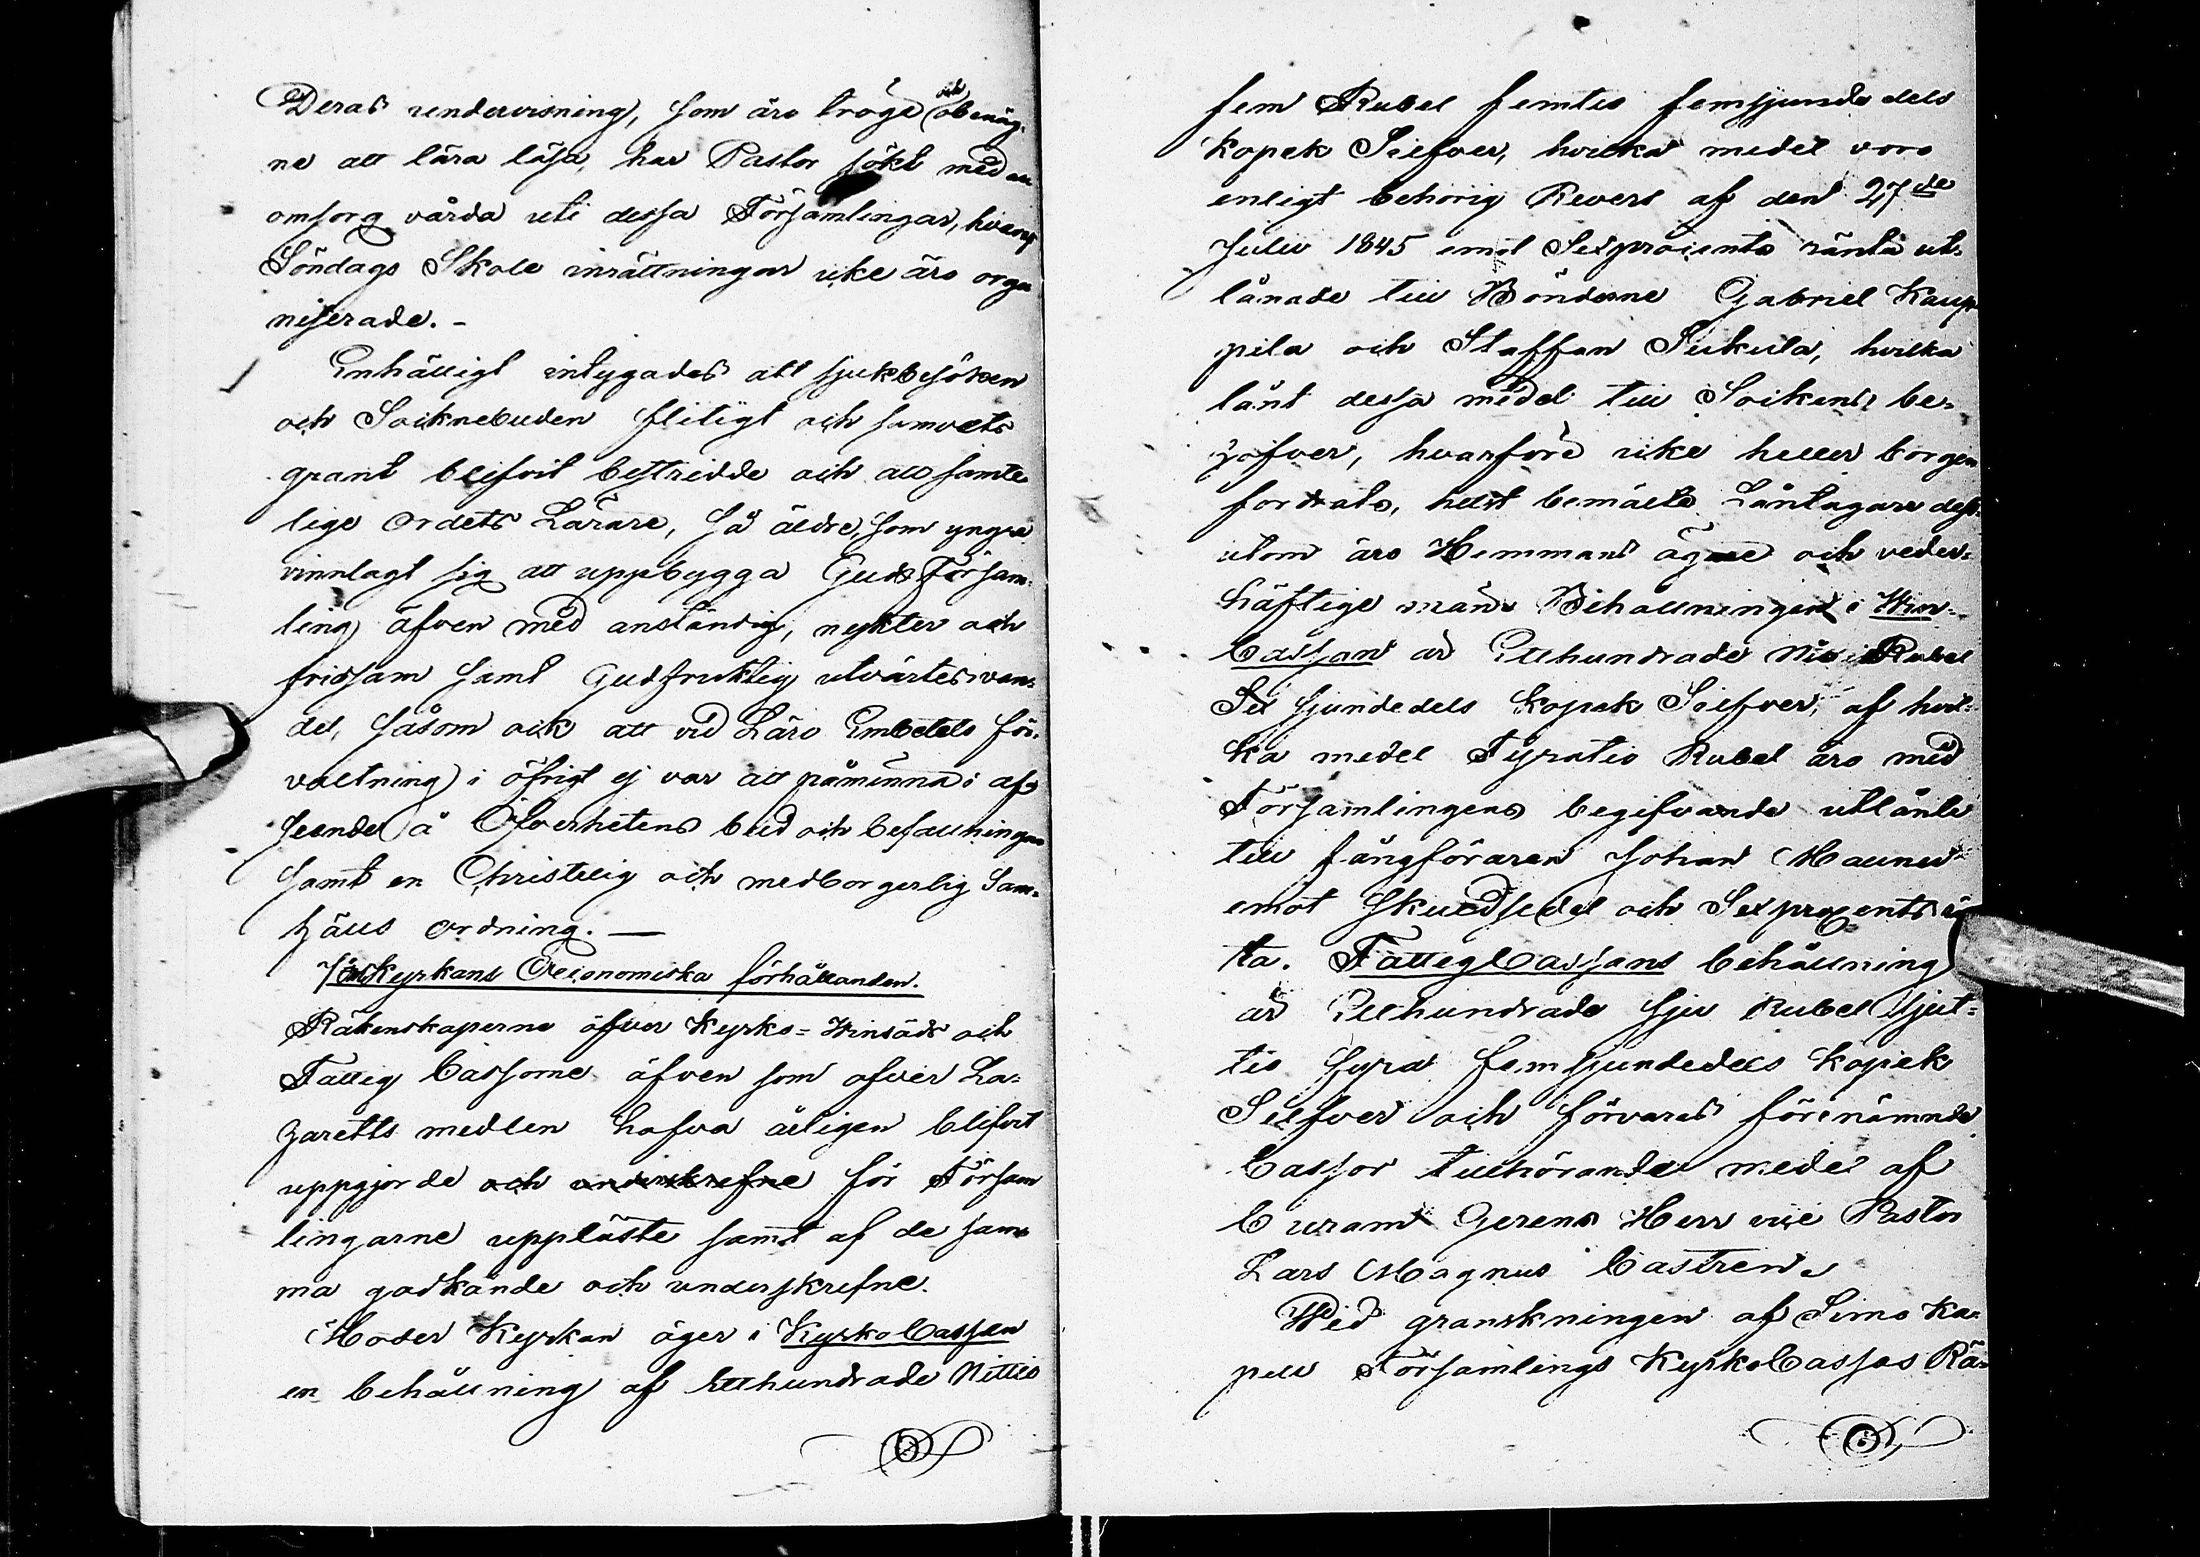 Deras undervisning, som äro tröge och obenäg-
ne att lära läsa, har Pastor sökt med
omsorg vårda uti dessa Församlingar, hvarest
Söndags Skole inrättningar icke äro orga
niserade. -
Enhälligt intygades att sjukbesöken
och Socknebuden flitigt och samvets
grant blifvit bestridde och att samte
lige Ordets Lärare, så äldre, som yngre
vinnlagt sig att uppbygga Guds Försam-
ling äfven med anständig, nykter och
fridsam samt Gudfruktig utvärtes van-
del, såsom ock att vid Läro Embetets för-
valtning i öfrigt ej var att påminna i af-
seende å Öfverhetens bud och befallningar
samt en Christelig och medborgerlig Sam-
hälls ordning. —
Kyrkans Oeconomiska förhållanden.
Räkenskaperne öfver Kyrko- Winsäds och
Fattig Cassorne äfven som öfver La-
zaretts medlen hafva årligen blifvit
uppgjorde och underskrefne för Försam
lingarne uppläste samt af de sam-
ma godkände och underskrefne.
Moder Kyrkan äger i Kyrko Cassan
en behållning af Etthundrade Nittio
fem Rubel femtio femsjundedels
Kopek Silfver, hvilka medel voro
enligt behörig Revers af den 27de
Julii 1845 emot Sexprocents ränta ut-
lånade till Bönderne Gabriel Kaup-
pila och Staffan Sukula, hvilka
lånt dessa medel till Sockens be-
hofver, hvarföre icke heller borgen
fordrats, helst bemälte Låntagare dess-
utom äro Hemmans ägare och veder-
häftige män. Behållningen i Win-
Cassan är Etthundrade Nio Rubel
Sex sjundedels Kopek Silfver, af hvil-
ka medel Fyratio Rubel äro med
Församlingens begifvande utlånte
till fångföraren Johan Hannu
emot Skuldsedel och Sexprocents rän
ta. FattigCassans behållning
är Etthundrade Sju Rubel Sjut-
tio fyra femsjundedels Kopek
Silfver och förvaras förenämnde
Cassor tillhörande medel af
Curam Gerens Herr vice Pastor
Lars Magnus Castren.
Wid granskningen af Simo Ka-
pell Församlings KyrkoCassas Rä-